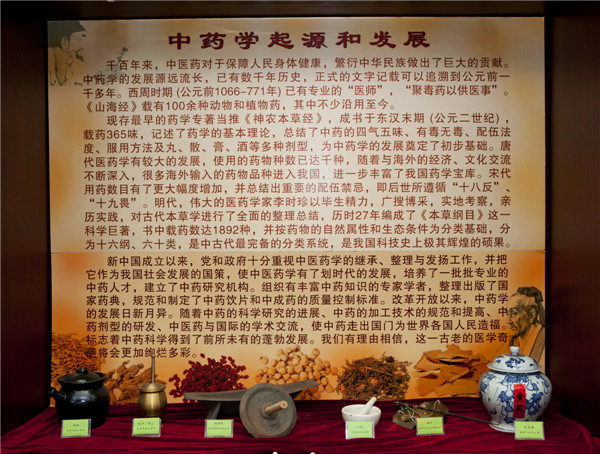 中药学起源和发展
千百年来，中医药对于保障人民身体健康，繁衍中华民族做出了巨大的贡献。
中药学的发展源远流长，已有数千年历史，正式的文字记载可以追溯到公元前一
千多年。西周时期(公元前1066–771年)已有专业的“医师”，“聚毒药以供医事”。
《山海经》载有100余种动物和植物药，其中不少沿用至今。
现存最早的药学专著当推《神农本草经》，成书于东汉末期(公元二世纪)，
载药365味，记述了药学的基本理论，总结了中药的四气五味、有毒无毒、配伍法
度、服用方法及丸、散、膏、酒等多种剂型，为中药学的发展奠定了初步基础。唐
代医药学有较大的发展，使用的药物种数已达千种，随着与海外的经济、文化交流
不断深入，很多海外输入的药物品种进入我国，进一步丰富了我国药学宝库。宋代
用药数目有了更大幅度增加，并总结出重要的配伍禁忌，即后世所遵循“十八反”、
“十九畏”。明代，伟大的医药学家李时珍以毕生精力，广搜博采，实地考察，亲
历实践，对古代本草学进行了全面的整理总结，历时27年编成了《本草纲目》这一
科学巨著，书中载药数达1892种，并按药物的自然属性和生态条件为分类基础，分
为十六纲、六十类，是中古代最完备的分类系统，是我国科技史上极其辉煌的硕果。
新中国成立以来，党和政府十分重视中医药学的继承、整理与发扬工作，并把
它作为我国社会发展的国策，使中医药学有了划时代的发展，培养了一批批专业的
中药人才，建立了中药研究机构。组织有丰富中药知识的专家学者，整理出版了国
家药典，规范和制定了中药饮片和中成药的质量控制标准。改革开放以来，中药学
的发展日新月异。随着中药的科学研究的进展、中药的加工技术的规范和提高、中
药剂型的研发、中医药与国际的学术交流，使中药走出国门为世界各国人民造福。
标志着中药科学得到了前所未有的蓬勃发展。我们有理由相信，这一古老的医学奇
葩将会更加绚烂多彩。